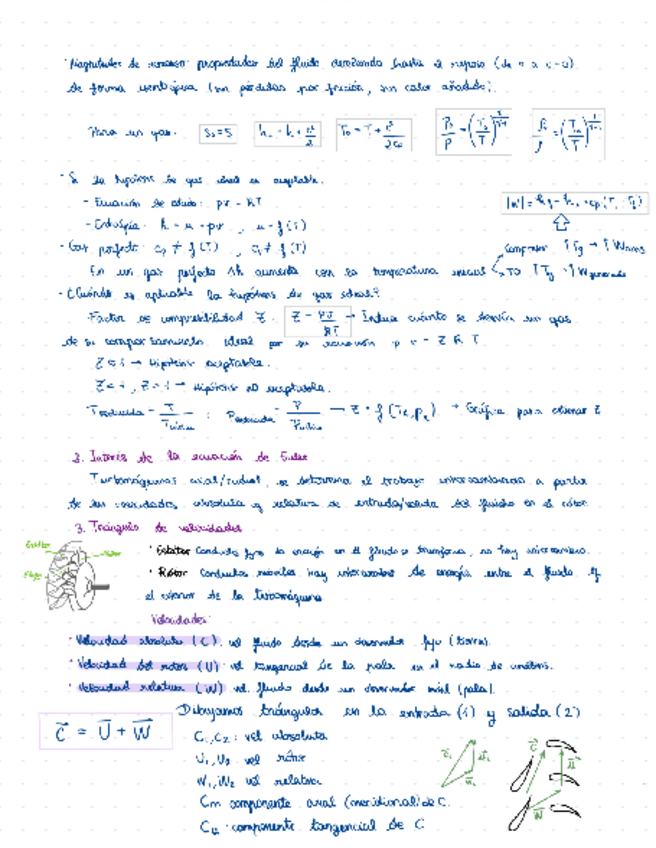 · Magnitudes de remanso: propiedades del fluido decelerado hasta el reposo (de c a c=0)
de forma isentrópica (sin pérdidas por fricción, sin calor añadido).
Para un gas: S₀=S h₀=h+c²/2 T₀=T+c²/2cp P₀/P=(T₀/T)
· Si la hipótesis de gas ideal es aceptable.
- Ecuación de estado: pv=RT
- Entalpía: h=u+pv, u=f(T)
· Gas perfecto: cp≠f(T), cv≠f(T)
Compresor ↑T → ↑W
En un gas perfecto Δh aumenta con la temperatura inicial
· ¿Cuándo es aplicable la hipótesis de gas ideal?
Factor de compresibilidad Z. Z=PV/RT → Indica cuánto se desvía un gas
de su comportamiento ideal por su ecuación pv=ZRT.
Z≈1 → Hipótesis aceptable.
Z<1, Z>1 → Hipótesis no aceptable.
→ Z=f(TR,PR) → Gráfica para obtener Z
3. Interés de la ecuación de Euler
Turbomáquinas axial/radial, se determina el trabajo intercambiado a partir
de las velocidades absoluta y relativa de entrada/salida del fluido en el rótor
3. Triángulo de velocidades
· Estátor Conducto fijo la energía en el fluido se transforma, no hay intercambio.
· Rótor Conductos móviles hay intercambio de energía entre el fluido y
el exterior de la turbomáquina
Velocidades:
· Velocidad absoluta (C): vel fluido desde un observador fijo (tierra).
· Velocidad del rotor (U): vel tangencial de la pala en el radio de análisis.
· Velocidad relativa (W) vel. fluido desde un observador móvil (pala).
Dibujamos triángulos en la entrada (1) y salida (2)
C⃗ = U⃗ + W⃗
C₁,C₂: vel absoluta
U₁,U₂ vel rótor
W₁,W₂ vel relativa
Cm componente axial (meridional) de C.
Cu componente tangencial de C